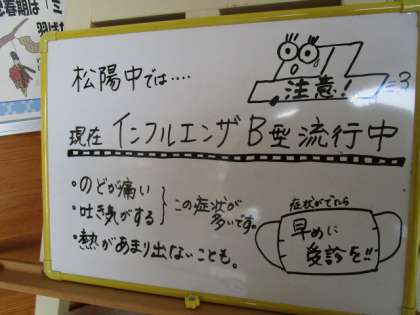 松陽中では････
注意!
現在 インフルエンザB型流行中
・のどが痛い
・吐き気がする
この症状が
多いです。
・熱があまり出ないことも。
症状がでたら
早めに
受診を!!